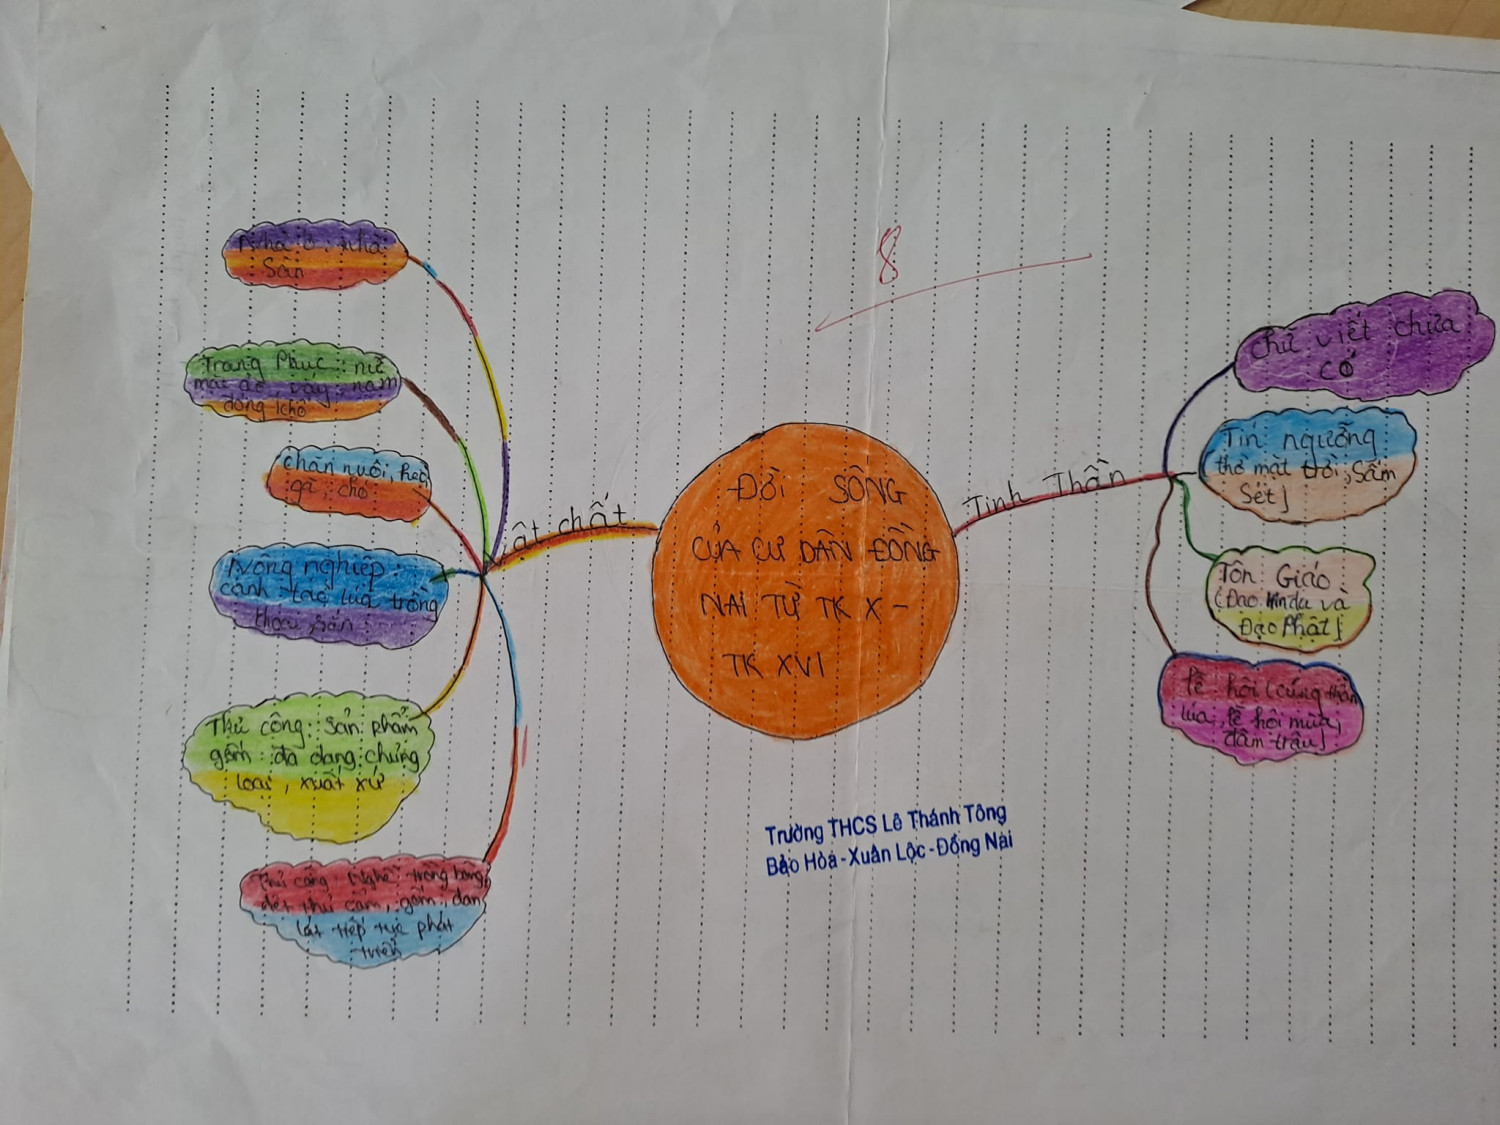 8
Nhà ở: nhà
Sàn
Trang Phục: nữ
mặc áo váy, nam
đóng khố
chăn nuôi, heo,
gà, chó
Nông nghiệp:
canh tác lúa trồng
khoai, sắn
Thủ công: sản phẩm
gốm đa dạng chủng
loại, xuất xứ
Thủ công Nghề trồng bông,
dệt thổ cẩm, gốm, đan
lát tiếp tục phát
triển
ật chất
ĐỜI SỐNG
CỦA CƯ DÂN ĐỒNG
NAI TỪ TK X-
TK XVI
Tinh Thần
chữ viết chưa
có
Tín ngưỡng
thờ mặt trời, Sấm
Sét]
Tôn Giáo
(Đạo Hindu và
Đạo Phật]
lễ hội (cúng thần
lúa, lễ hội mùa,
đâm trâu]
Trường THCS Lê Thánh Tông
Bảo Hòa-Xuân Lộc-Đồng Nai